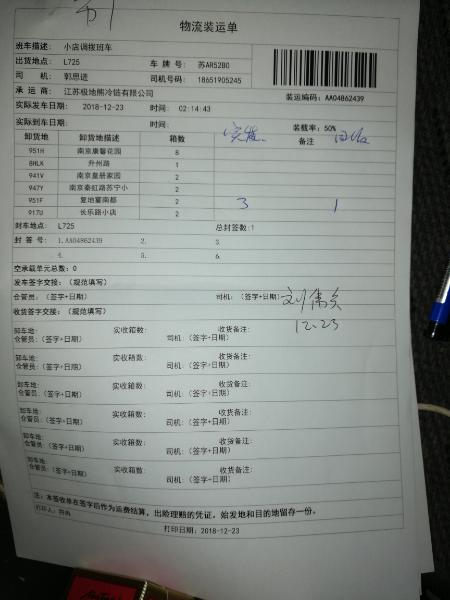 物流装运单
班车描述: 小店调拨班车
出货地点: L725 车 牌 号: 苏AR52B0
司 机: 郭思进 司机号码: 18651905245
承 运 商: 江苏极地熊冷链有限公司 装运编码: AA04862439
实际发车日期: 2018-12-23 时间: 02:14:43
实际到车日期: 时间: 装载率: 50%
卸货地 卸货地描述 箱数 实发 备注 回收
951H 南京康馨花园 8
8HLK 升州路 1
941V 南京皇册家园 2
947Y 南京秦虹路苏宁小 2
951F 复地宴南都 2 3 1
917U 长乐路小店 2
封车地点: L725 总封签数:1
封 签 号: 1.AA04862439 2. 3.
4. 5. 6.
空承载单元总数: 0
发车签字交接: (规范填写)
仓管员: (签字+日期) 司机: (签字+日期)
12.23
收货签字交接: (规范填写)
卸车地: 实收箱数: 收货备注:
仓管员: (签字+日期) 司机: (签字+日期)
卸车地: 实收箱数: 收货备注:
仓管员: (签字+日期) 司机: (签字+日期)
卸车地: 实收箱数: 收货备注:
仓管员: (签字+日期) 司机: (签字+日期)
卸车地: 实收箱数: 收货备注:
仓管员: (签字+日期) 司机: (签字+日期)
卸车地: 实收箱数: 收货备注:
仓管员: (签字+日期) 司机: (签字+日期)
卸车地: 实收箱数: 收货备注:
仓管员: (签字+日期) 司机: (签字+日期)
注: 本签收单在签字后作为运费结算, 出险理赔的凭证。始发地和目的地留存一份。
打印人:
打印日期: 2018-12-23